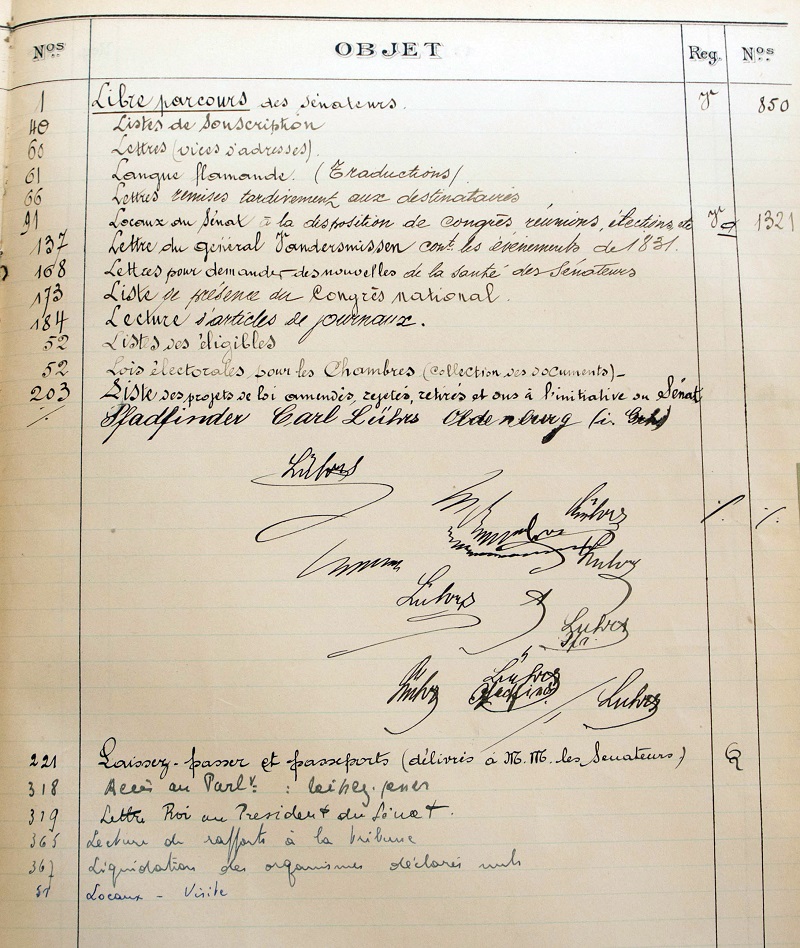 Nos OBJET Reg. Nos
1 Libre parcours des Sénateurs. V 850
40 Listes de Souscription
60 Lettres (vices d'adresses).
61 Langue flamande. (Traductions)
66 Lettres remises tardivement aux destinataires
91 Locaux du Sénat à la disposition de congrès réunions, élections, etc V 1321
137 Lettre du général Vandersmissen cont. les événements de 1831.
168 Lettres pour demander des nouvelles de la santé des Sénateurs
173 Liste de présence du Congrès national.
184 Lecture d'articles de journaux.
52 Listes des éligibles
52 Lois électorales pour les Chambres (collection des documents)-
203 Liste des projets de loi amendés, rejetés, retirés et dus à l'initiative du Sénat
% Pfadfinder Carl Lührs Oldenburg (i.
Lührs
Lührs
% %
Lührs
Lührs
Lührs
Lührs
Lührs
Lührs
221 Laissez-passer et passeports (délivrés à M.M. les Senateurs)
318 Accès au Parlt : laissez-passer
319 Lettre Roi au President du Sénat.
365 Lecture de rapports à la tribune
367 Liquidation des organismes déclarés nuls
51 Locaux - Visite